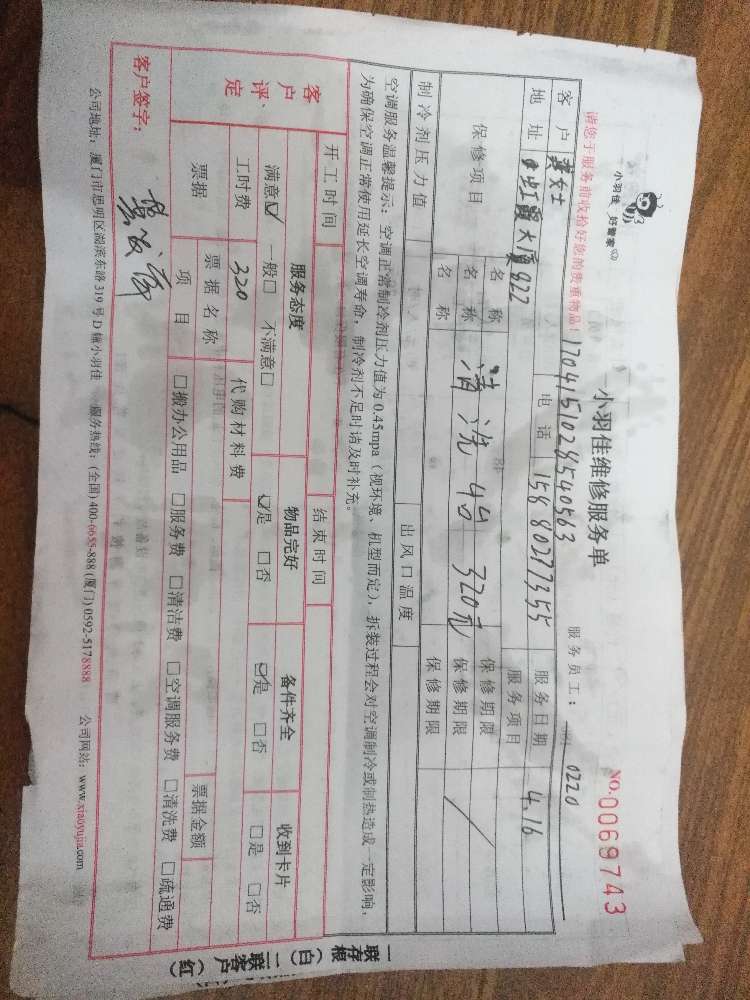 小羽佳 好管家
小羽佳维修服务单
NO.0069743
请您于服务前收拾好您的贵重物品!
1704151028540563
服务员工: 0220
客户 女士 电话 15880277355 服务日期 4.16
地址 大厦922 服务项目
保修项目 名称 保修期限
名称 清洗4台 320元 保修期限
名称 保修期限
制冷剂压力值 出风口温度
空调服务温馨提示:空调正常制冷剂压力值为0.45mpa(视环境、机型而定),拆装过程会对空调制冷或制热造成一定影响,
为确保空调正常使用延长空调寿命,制冷剂不足时请及时补充。
开工时间 结束时间
客户评定 服务态度 物品完好 备件齐全 收到卡片
满意☑ 一般□ 不满意□ ☑是 □否 ☑是 □否 □是 □否
工时费 320 代购材料费
票据 票据名称 票据金额
项目 □搬办公用品 □服务费 □清洁费 □空调服务费 □清洗费 □疏通费
客户签字:
公司地址:厦门市思明区湖滨东路319号D幢小羽佳 服务热线:(全国)400-6655-888 (厦门)0592-5178888 公司网站:www.xiaoyujia.com
一联存根(白)二联客户(红)